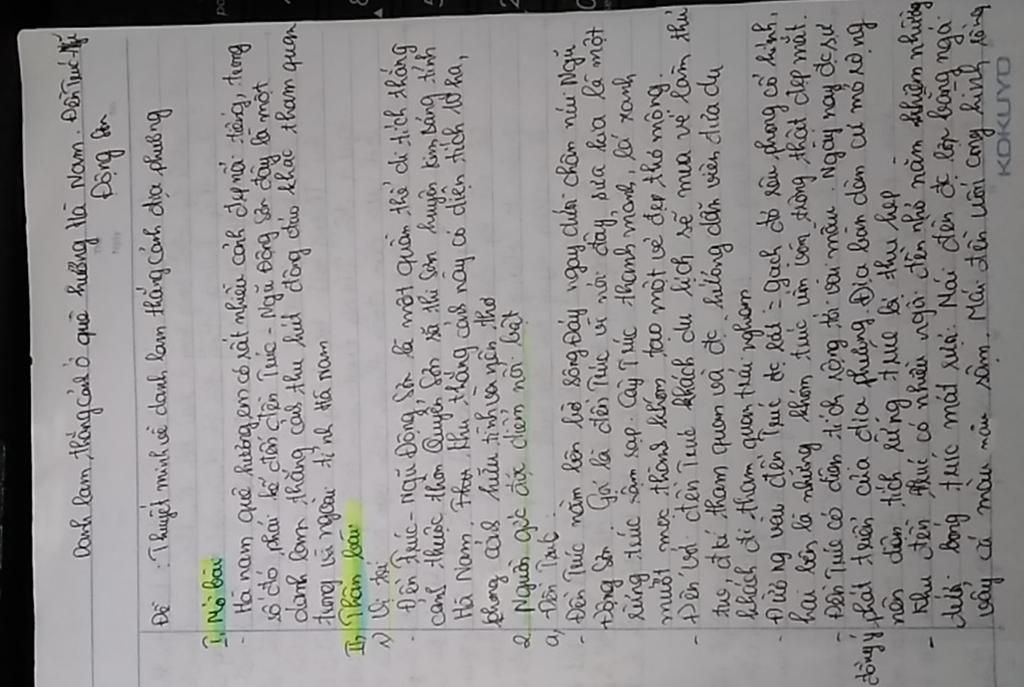 Danh lam thắng cảnh ở quê hương Hà Nam. Đền Trúc-Ngũ
Động Sơn
Đề: Thuyết minh về danh lam thắng cảnh địa phương
I, Mở bài
- Hà nam quê hương em có rất nhiều cảnh đẹp nổi tiếng, trong
số đó phải kể đến đền Trúc - Ngũ Động Sơn đây là một
danh lam thắng cảnh thu hút đông đảo khác tham quan
trong và ngoài tỉnh Hà nam
II, Thân bài
1) Vị trí
- Đền Trúc - Ngũ Động Sơn là một quần thể di tích thắng
cảnh thuộc thôn Quyển Sơn xã thi Sơn huyện kim bảng tỉnh
Hà Nam. Khu thắng cảnh này có diện tích 10 ha,
phong cảnh hữu tình nên thơ
2. Nguồn gốc đặc điểm nổi bật
a, Đền Trúc
- Đền Trúc nằm bên bờ sông Đáy ngay dưới chân núi Ngũ
Động Sơn. Gọi là đền Trúc vì nơi đây, xưa kia là một
rừng trúc rậm rạp. Cây Trúc thanh mảnh, lá xanh
mướt mọc thành khóm tạo một vẻ đẹp thơ mộng
- Đến với đền Trúc khách du lịch sẽ mua vé làm thủ
tục, đi tham quan và đc hướng dẫn viên đưa du
khách đi tham quan trải nghiệm
- Đường vào đền Trúc đc lát = gạch đỏ rêu phong cổ kính,
hai bên là những khóm trúc uốn vòm trông thật đẹp mắt.
- Đền Trúc có diện tích rộng tới vài mẫu. Ngày nay do sự
đồng ý phát triển của địa phương. Địa bàn dân cư mở rộng
nên diện tích rừng trúc bị thu hẹp
- Khu đền Trúc có nhiều ngôi đền nhỏ nằm khiêm nhường
dưới bóng trúc mát rượi. Mái đền đc lợp bằng ngói
vẩy cá màu nâu sậm. Mái đền uốn cong hình rồng
KOKUYO